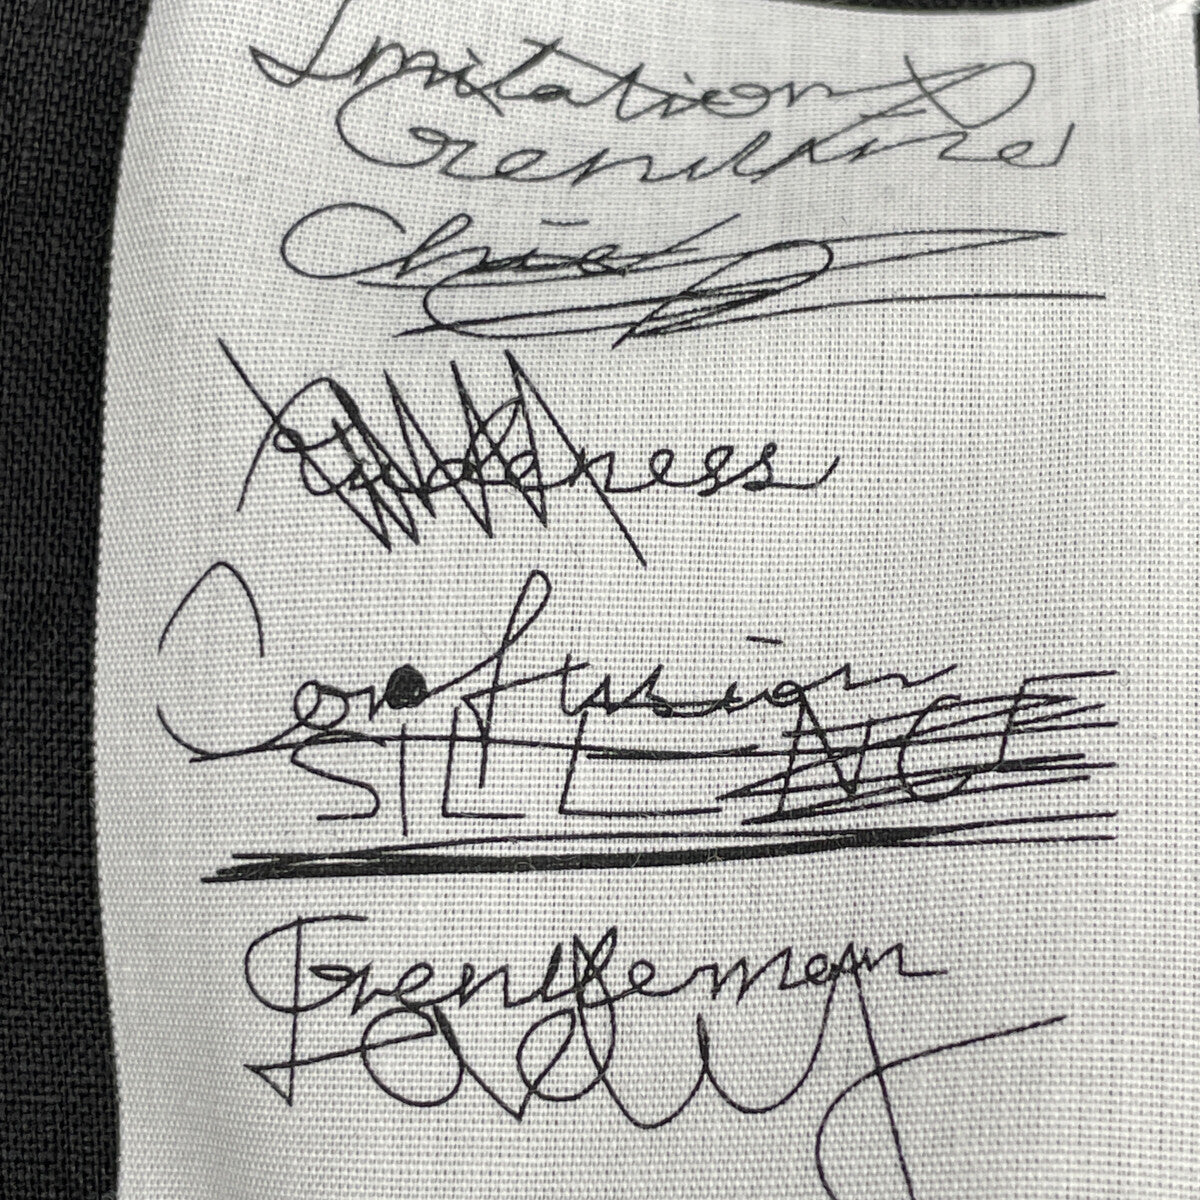 Imitation
Genuine
Chief
Rudeness
Confusion
SILENCE
Gentleman